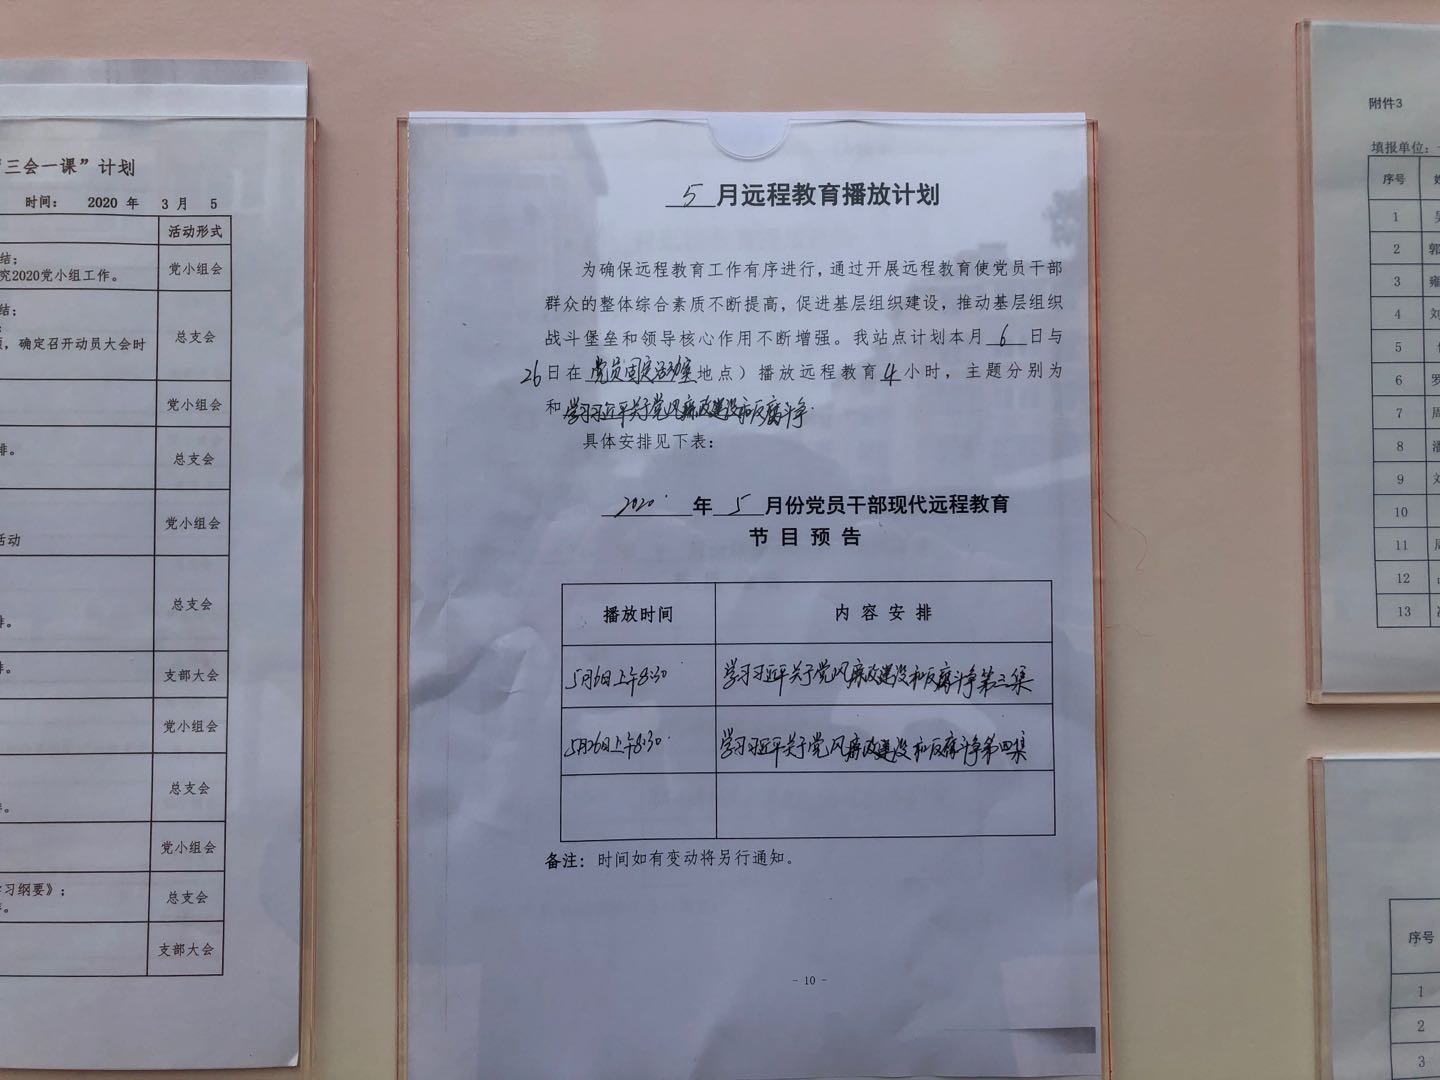 “三会一课”计划
时间： 2020 年 3 月 5
活动形式
结；
究2020党小组工作。
党小组会
结；
，确定召开动员大会时
总支会
党小组会
排。
总支会
党小组会
活动
总支会
排。
排。
支部大会
党小组会
总支会
党小组会
学习纲要》；
总支会
支部大会
5 月远程教育播放计划
为确保远程教育工作有序进行，通过开展远程教育使党员干部
群众的整体综合素质不断提高，促进基层组织建设，推动基层组织
战斗堡垒和领导核心作用不断增强。我站点计划本月 6 日与
26日在 党员固定活动室 地点）播放远程教育 4 小时，主题分别为
和 学习习近平关于党风廉政建设和反腐斗争.
具体安排见下表：
2020 年 5 月份党员干部现代远程教育
节 目 预 告
播放时间 内 容 安 排
5月6日上午8:30 学习习近平关于党风廉政建设和反腐斗争第三集
5月26日上午8:30 学习习近平关于党风廉政建设和反腐斗争第四集
备注： 时间如有变动将另行通知。
- 10 -
附件3
填报单位：
序号
1
2 郭
3 雍
4 刘
5
6 罗
7 周
8 潘
9 刘
10
11 周
12
13
序号
1
2
3